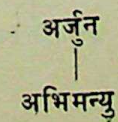 अर्जुन
अभिमन्यु